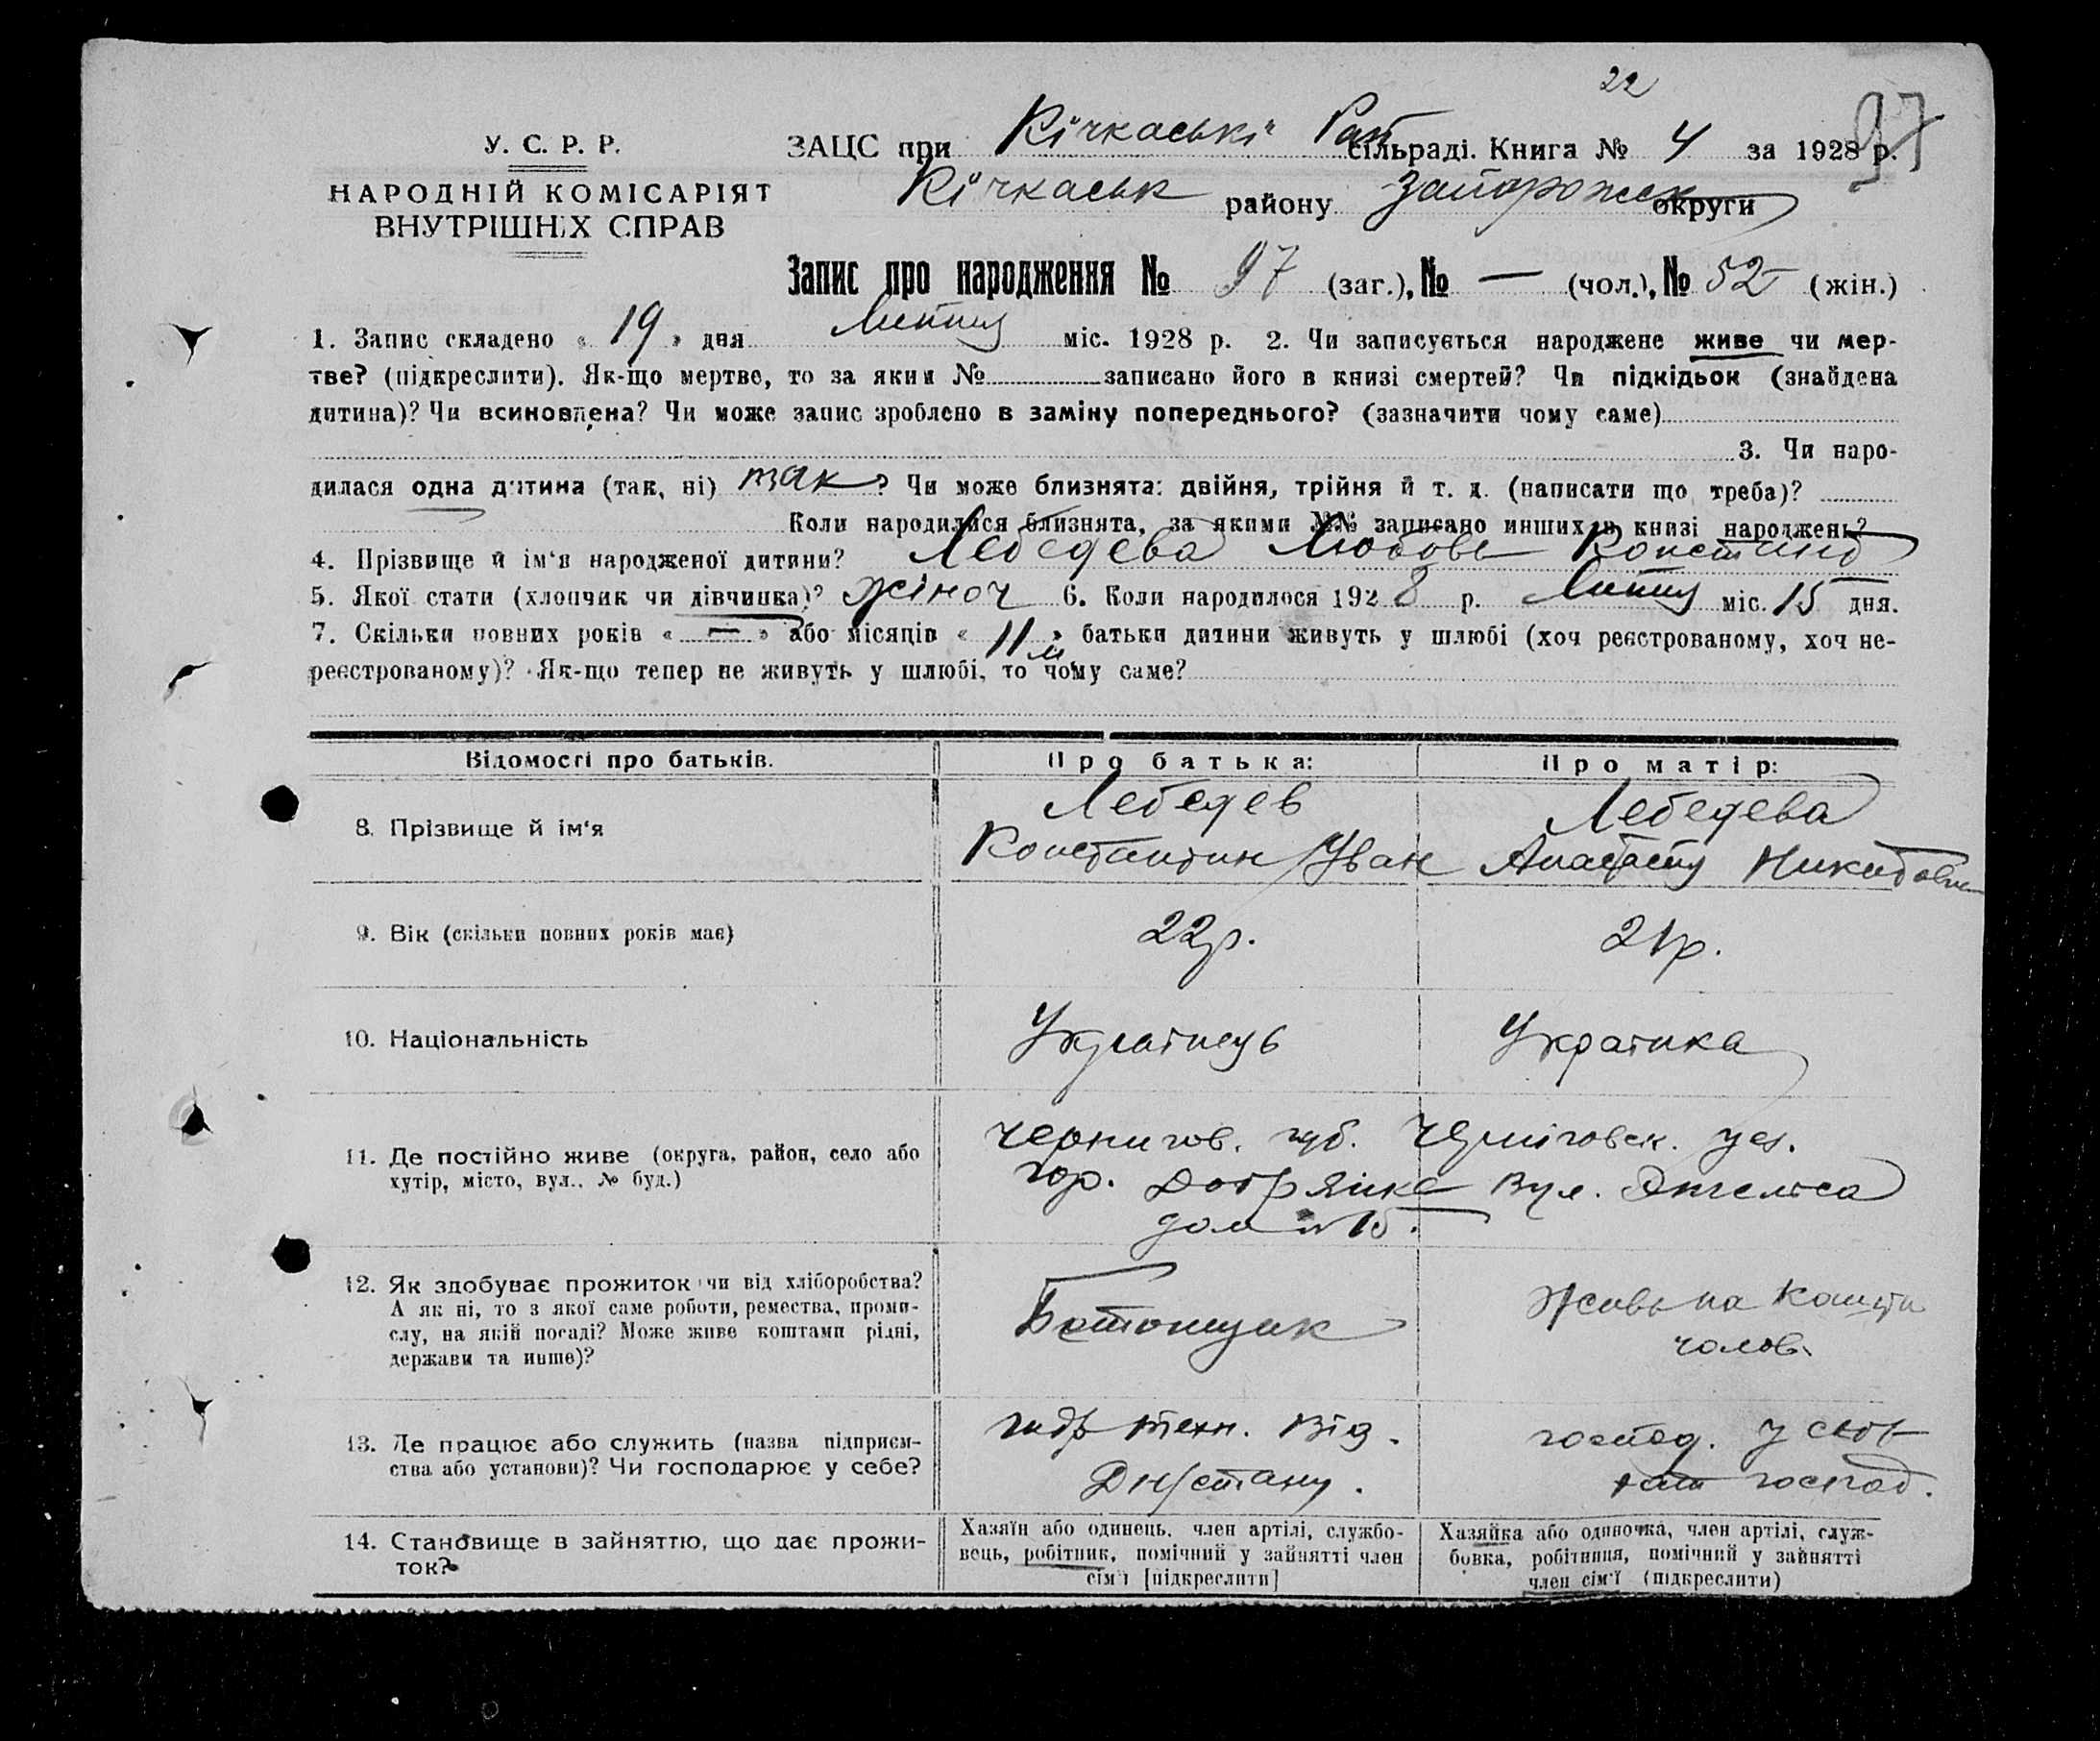 22
У. С. Р. Р.
ЗАЦС при Кічкаські Рай сільраді. Книга № 4 за 1928 р. 97
НАРОДНІЙ КОМІСАРІЯТ
ВНУТРІШНІХ СПРАВ
Кічкаськ району Запорожск округи
Запис про народження № 97 (заг.), № — (чол.), № 52 (жін.)
1. Запис складено « 19 » дня Липня міс. 1928 р. 2. Чи записується народжене живе чи мер-
тве? (підкреслити). Як-що мертве, то за яким № записано його в книзі смертей? Чи підкідьок (знайдена
дитина)? Чи всиновлена? Чи може запис зроблено в заміну попереднього? (зазначити чому саме)
3. Чи наро-
дилася одна дитина (так, ні) так? Чи може близнята: двійня, трійня й т. д. (написати що треба)?
Коли народилися близнята, за якими №№ записано инших в книзі народжень?
4. Прізвище й ім'я народженої дитини? Лебедева Любовь Констант
5. Якої стати (хлопчик чи дівчинка)? жіноч 6. Коли народилося 1928 р. Липня міс. 15 дня.
7. Скільки повних років « — » або місяців « 11 м » батьки дитини живуть у шлюбі (хоч реєстрованому, хоч не-
реєстрованому)? Як-що тепер не живуть у шлюбі, то чому саме?
Відомості про батьків.
Про батька:
Про матір:
8. Прізвище й ім'я
Лебедев
Константин Иван
Лебедева
Анастасия Никитовн
9. Вік (скільки повних років має)
22 р.
21 р.
10. Національність
Українець
Українка
11. Де постійно живе (округа, район, село або
хутір, місто, вул., № буд.)
Чернигов. губ. Черніговск. уез.
гор. Добрянка Вул. Энгельса
дом № 15.
12. Як здобуває прожиток чи від хліборобства?
А як ні, то з якої саме роботи, ремества, проми-
слу, на якій посаді? Може живе коштами рідні,
держави та инше)?
Бетонщик
Живе на кошти
чолов.
13. Де працює або служить (назва підприєм-
ства або установи)? Чи господарює у себе?
гидр техн. Від.
господ. у своі
госпад.
14. Становище в зайняттю, що дає прожи-
ток?
Хазяїн або одинець, член артілі, службо-
вець, робітник, помічний у зайнятті член
сім'ї [підкреслити]
Хазяйка або одиночка, член артілі, служ-
бовка, робітниця, помічний у зайнятті
член сім'ї (підкреслити)